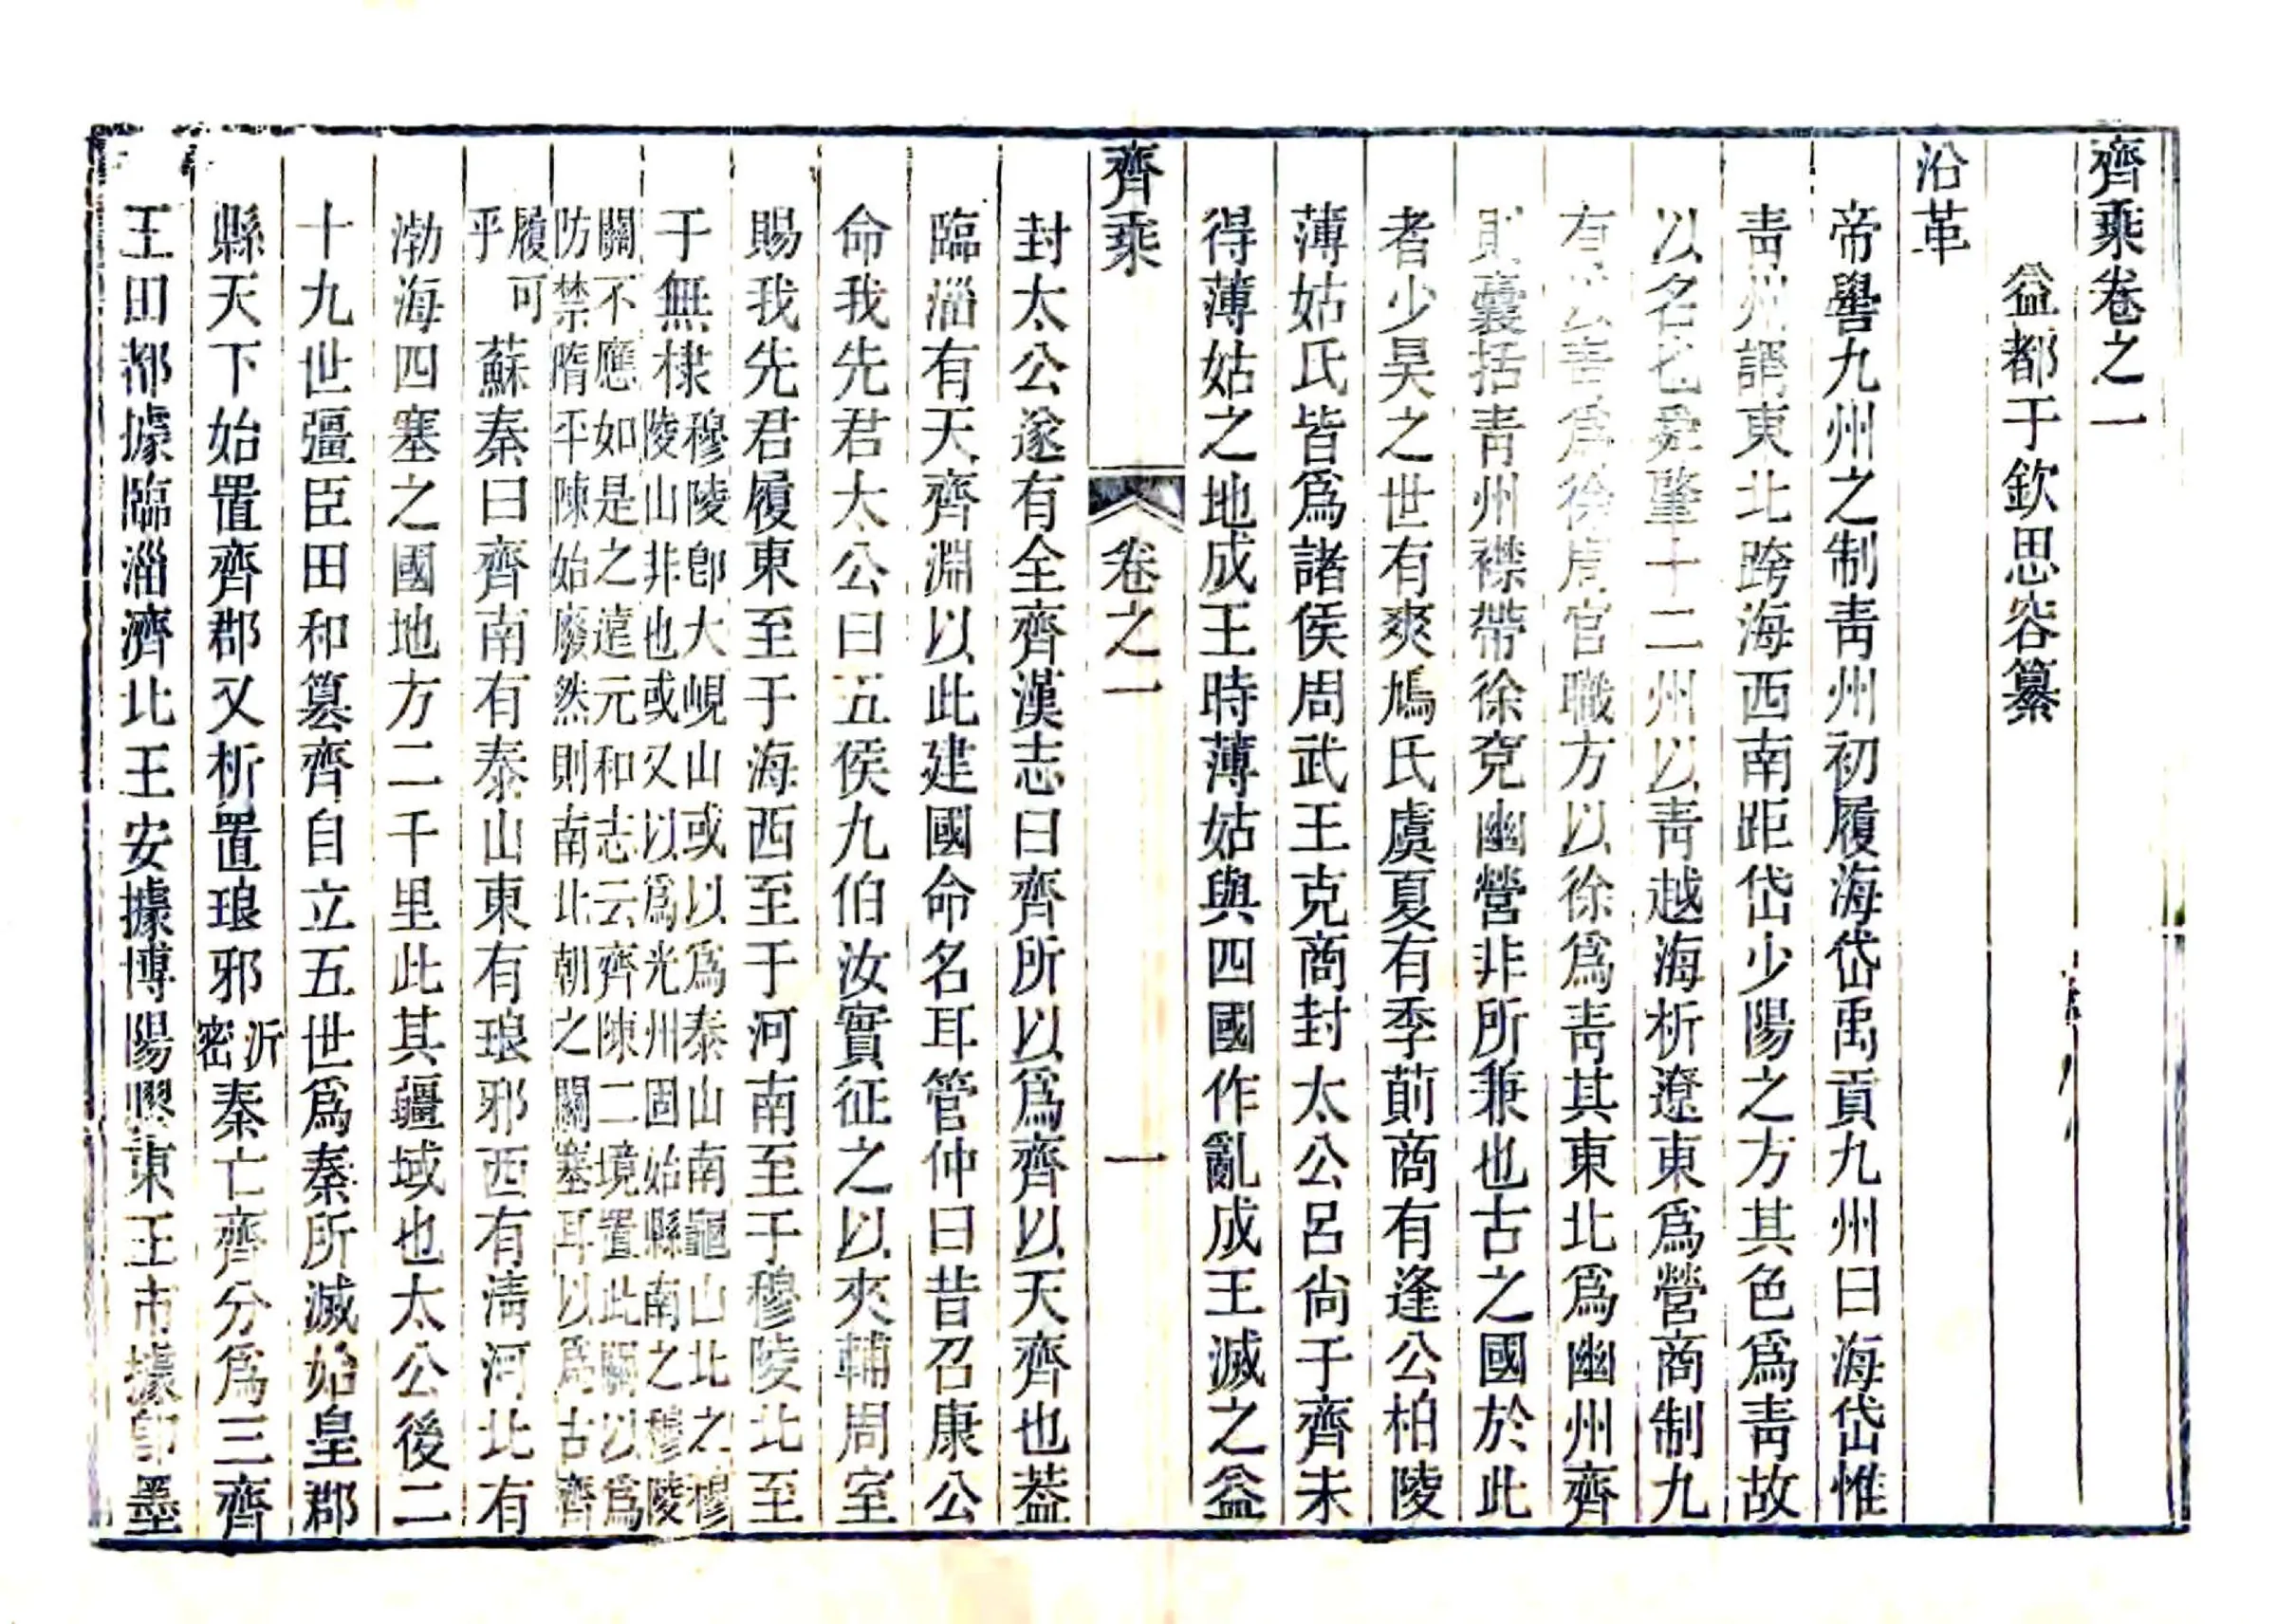 齊乘卷之一
益都于欽思容纂
沿革
帝嚳九州之制靑州初履海岱禹貢九州曰海岱惟
靑州謂東北跨海西南距岱少陽之方其色爲靑故
以名也堯肇十二州以靑越海析遼東爲營商制九
有營爲徐周官職方以徐爲靑其東北爲幽州齊
則囊括靑州襟帶徐兗幽營非所兼也古之國於此
者少昊之世有爽鳩氏虞夏有季萴商有逢公柏陵
薄姑氏皆爲諸侯周武王克商封太公呂尙于齊未
得薄姑之地成王時薄姑與四國作亂成王滅之益
齊乘 卷之一 一
封太公遂有全齊漢志曰齊所以爲齊以天齊也葢
臨淄有天齊淵以此建國命名耳管仲曰昔召康公
命我先君太公曰五侯九伯汝實征之以夾輔周室
賜我先君履東至于海西至于河南至于穆陵北至
于無棣穆陵卽大峴山或以爲泰山南龜山北之穆
陵山非也或又以爲光州固始縣南之穆陵
關不應如是之遠元和志云齊陳二境置此關以爲
防禁隋平陳始廢然則南北朝之關塞耳以爲古齊
履可
乎
蘇秦曰齊南有泰山東有琅邪西有淸河北有
渤海四塞之國地方二千里此其疆域也太公後二
十九世彊臣田和篡齊自立五世爲秦所滅始皇郡
縣天下始置齊郡又析置琅邪沂
密秦亡齊分爲三齊
王田都據臨淄濟北王安據博陽膠東王市據卽墨